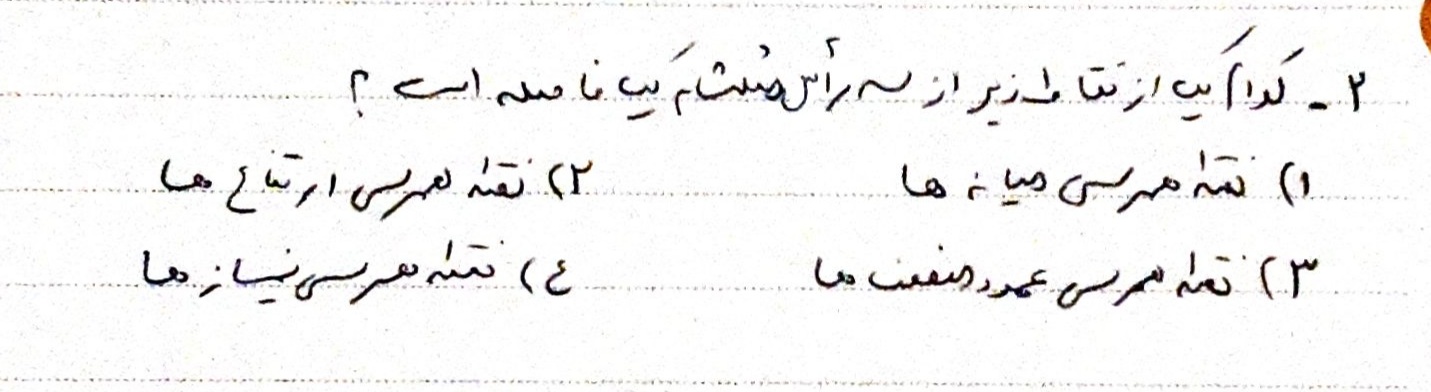 ۲ - کدام یک از نقاط زیر از سه رأس مثلث به یک فاصله است ؟
۱) نقطه همرسی میانه ها ۲) نقطه همرسی ارتفاع ها
۳) نقطه همرسی عمود منصف ها ٤) نقطه همرسی نیمساز ها